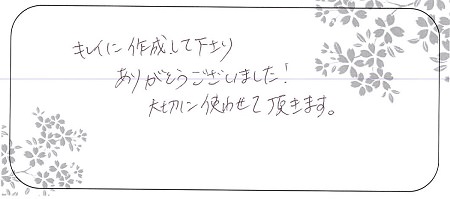 キレイに作成して下さり
ありがとうございました!
大切に使わせて頂きます。